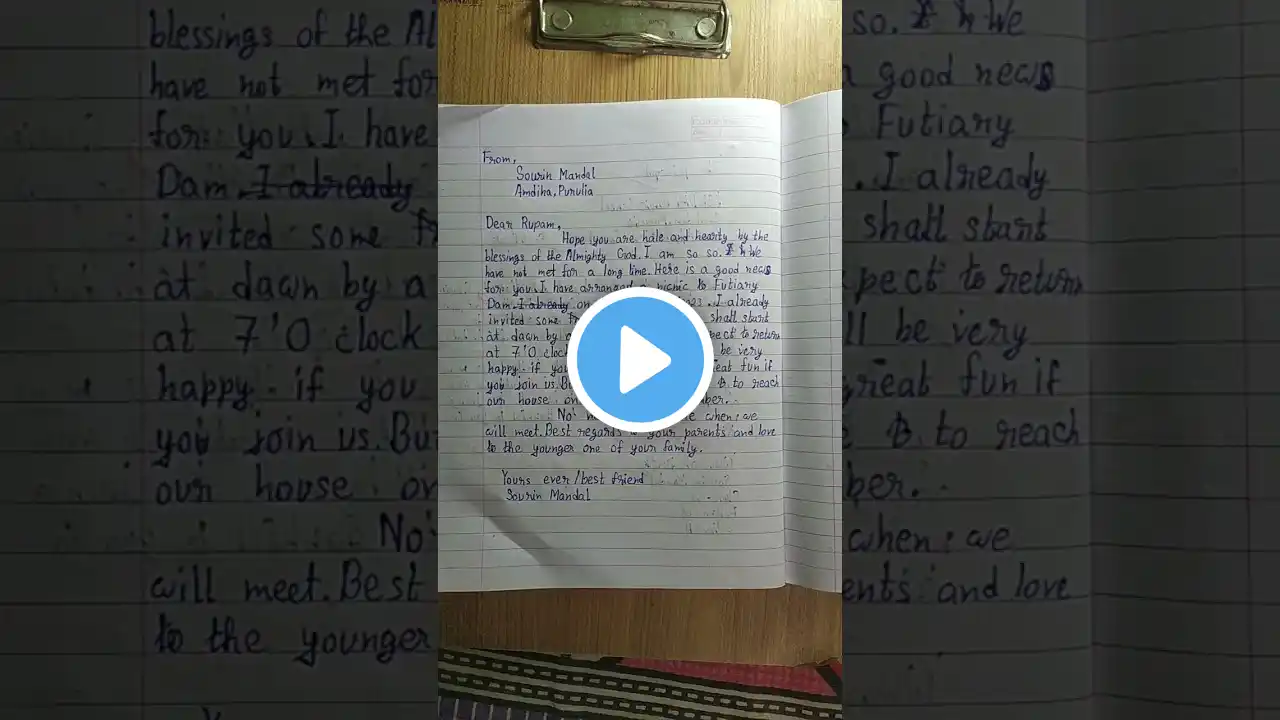 From,
Sourin Mandal
Amdiha, Purulia
Dear Rupam,
Hope you are hale and hearty by the
blessings of the Almighty God. I am so so. We
have not met for a long time. Here is a good news
for you. I have arranged a picnic to Futiary
Dam. I already on . I already
invited some shall start
at dawn by a to return
at 7'O clock be very
happy if you great fun if
you join us. to reach
our house
when we
will meet. Best regards to your parents and love
to the younger one of your family.
Yours ever/best friend
Sourin Mandal